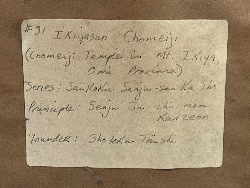 #31 IKiyasan Chomeiji
(Chomeiji Temple in Mt. IKiya
Omi Province)
Series: SanKoKu Sanju-sanKa Sho
Principle: Senju Ju-ichi-men
Kanzeon
Founder: ShoToKu Taishi